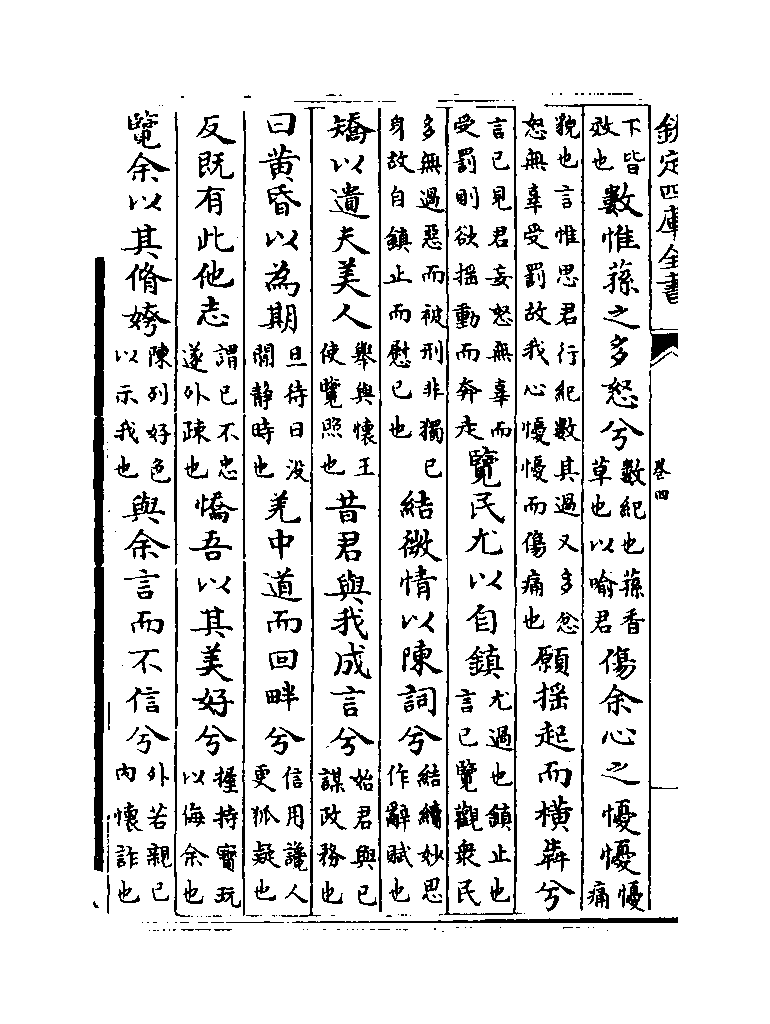 欽定四庫全書 卷四
下皆效也數惟蓀之多怒兮數紀也蓀香草也以喻君傷余心之懮懮懮痛
貌也言惟思君行紀數其過又多忿怒無辜受罰故我心懮懮而傷痛也願揺起而横犇兮
言已見君妄怒無辜而受罰則欲揺動而奔走覽民尤以自鎮尤過也鎮止也言已覽觀衆民
多無過惡而被刑非獨已身故自鎮止而慰已也結微情以陳詞兮結續妙思作辭賦也
矯以遺夫美人舉與懷王使覽照也昔君與我成言兮始君與已謀政務也
曰黄昏以為期旦待日没閒靜時也羌中道而回畔兮信用讒人更狐疑也
反既有此他志謂已不忠遂外疎也憍吾以其美好兮握持寳玩以侮余也
覽余以其脩姱陳列好色以示我也與余言而不信兮外若親已内懷詐也